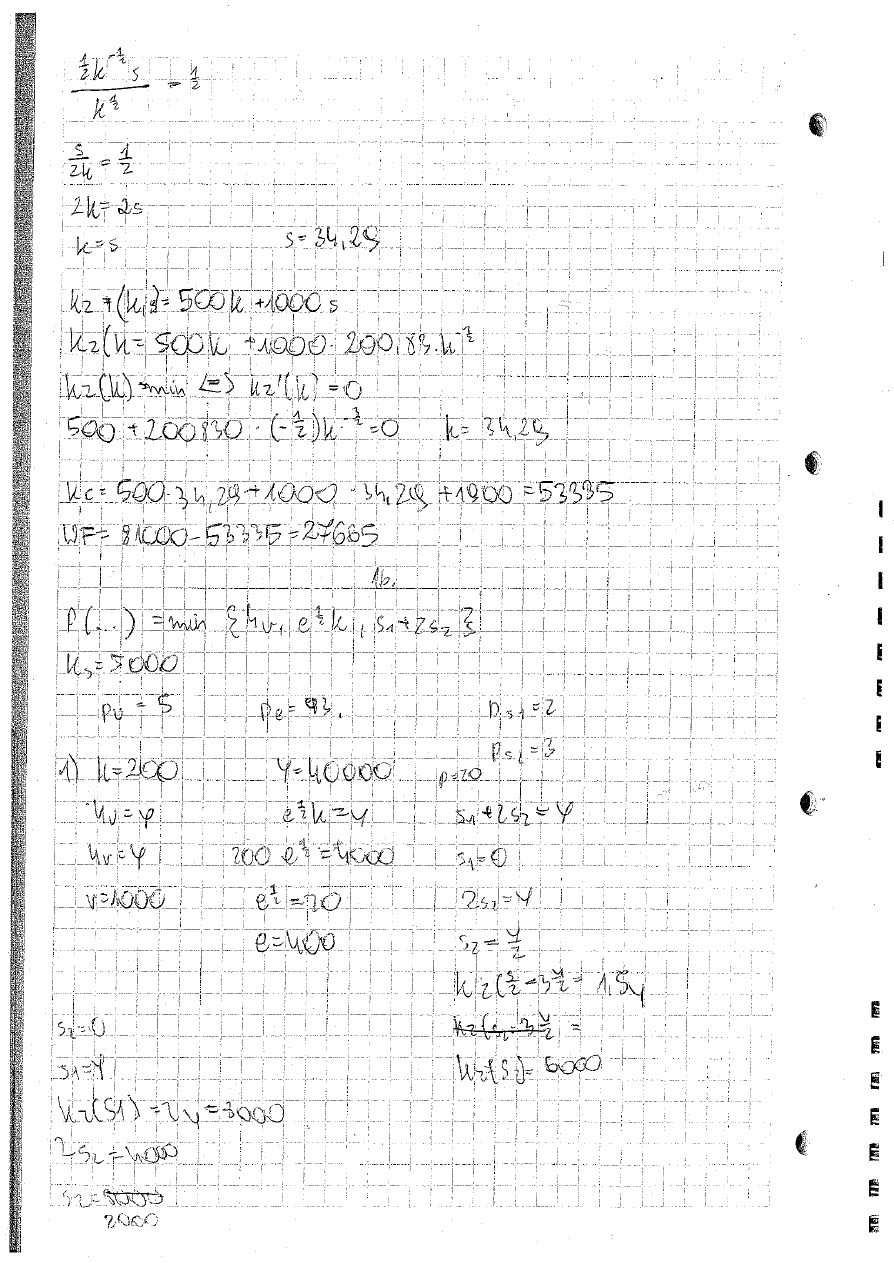 ½k^-½ s / k^½ = ½
s/2k = 1/2
2k=2s
k=s s=34,29
kz (k,s)= 500k +1000s
kz(k= 500k +1000· 200,83·k^-½
kz(k) →min <=> kz'(k) =0
500 + 200830 ·(-½)k^-3/2 =0 k= 34,29
Kc= 500·34,29+1000·34,29 +1900 =53335
WF= 81000-53335=27665
1b.
P(...) =min {4v, e^½k, s1+2s2}
Ks=5000
pv = 5 pe= 43. ps1=2
ps2=3
1) k=200 Y=40000 p=20
4v=y e^½k=y s1+2s2=y
4v=y 200 e^½=4000 s1=0
v=1000 e^½=20 2s2=y
e=400 s2=y/2
kz(s2 =3y/2= 1,5y
s2=0 kz(s2=3y/2 =
s1=y kz(s2)= 6000
kz(s1) =2y=8000
2s2=4000
s2=8000
2000